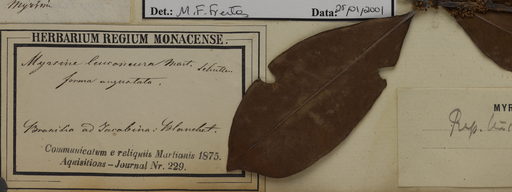 Myrsin
Det.: M. F. Freitas Data: 25/01/2001
HERBARIUM REGIUM MONACENSE.
Myrsine leuconeura Mart.
forma angustata.
Brasilia ad Jacobina: Blanchet.
Communicatum e reliquiis Martianis 1875.
Aquisitions - Journal Nr. 229.
MYR